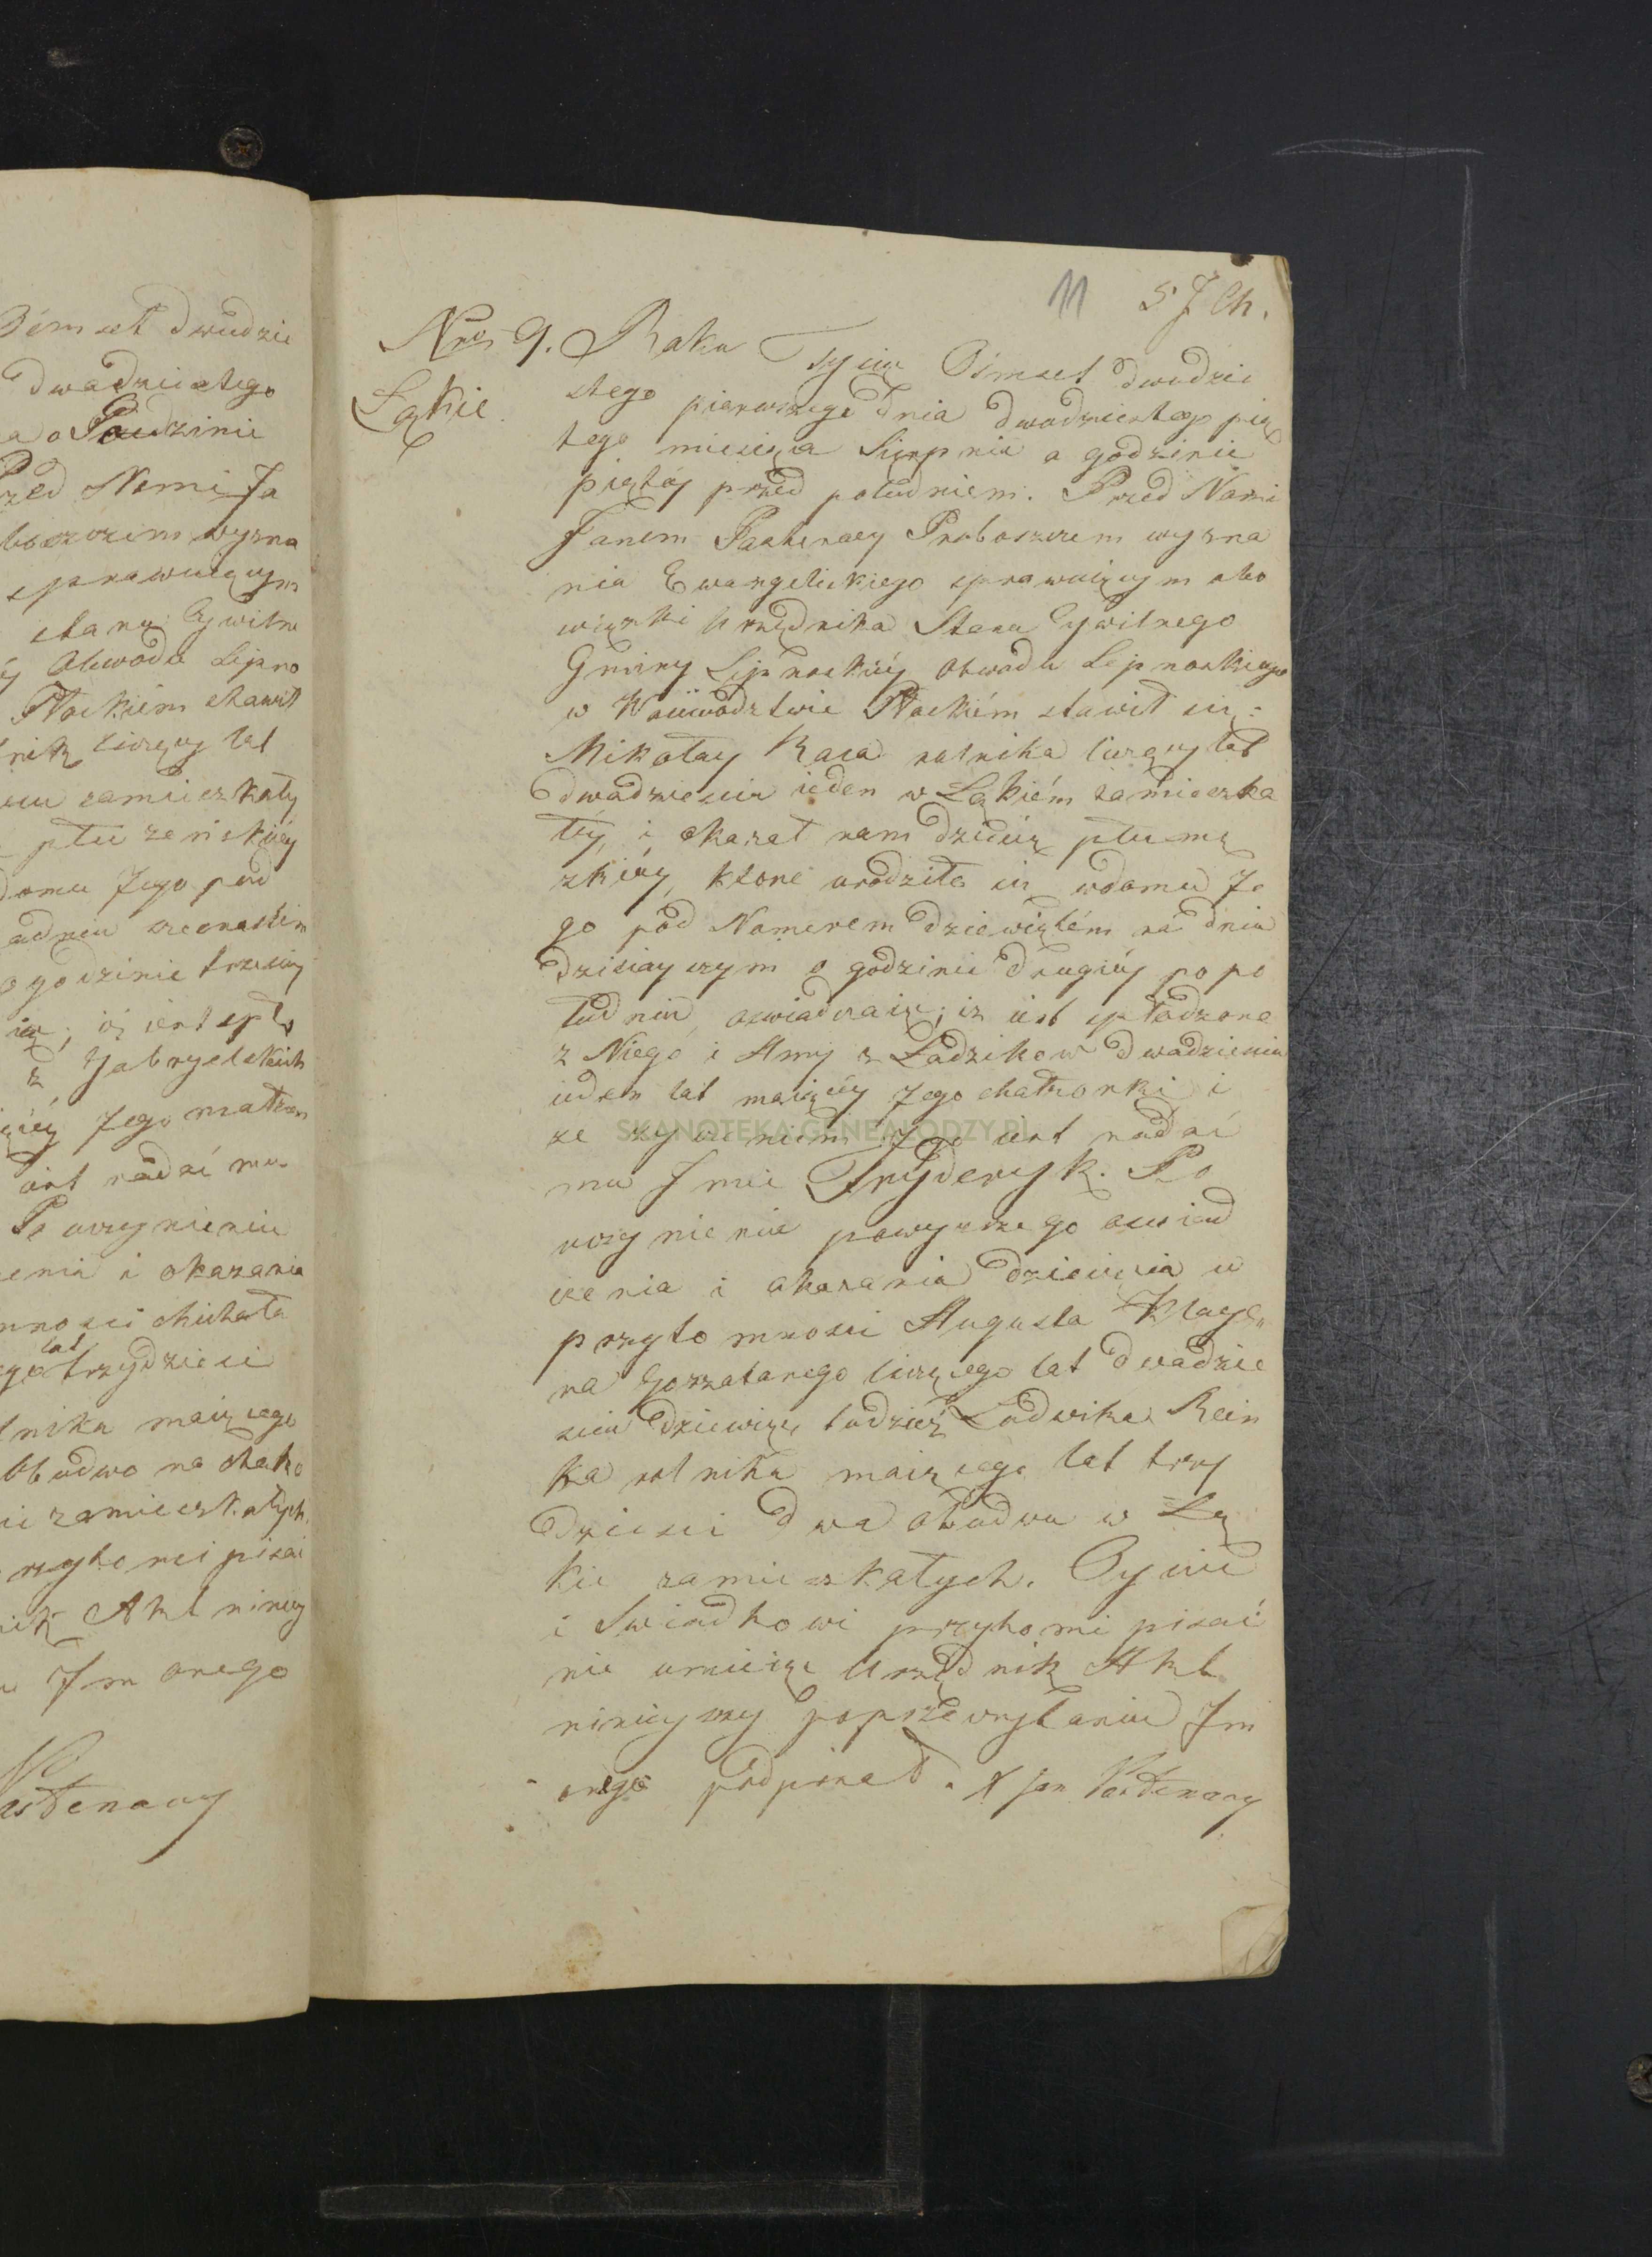 Bém set dwudzie
dwadziestego
a o Godzinie
Przed Nami Ja
boszczem wyzna
sprawuiącym
stanu Cywilne
Obwodu Lipno
Płockiém stawił
liczący lat
zamieszkały
płci żeńskiéy
domu Jego pod
o godzinie trzeciéy
iż iest spło
z Gabryelskich
Jego małżon
iest nadać mu
Po uczynieniu
enia i okazania
mności Michała
lat
trzydzieści
lnika maiącego
Obudwo na
zamieszkałych.
pisać
Akt niniey
Im onego
astenacy
11 5 J Ch.
Nro 9. Roku Tysiąc Ośmset dwudzie
Łąkie
stego pierwszego dnia dwudziestego pią
tego miesiąca Sierpnia o godzinie
piątéy przed południem. Przed Nami
Janem Pastenacy Proboszczem wyzna
nia Ewangelickiego sprawuiącym obo
wiązki Urzędnika Stanu Cywilnego
Gminy Lipnoskiéy Obwodu Lipnoskiego
w Woiiwodztwie Płockiém stawił się:
Mikołay Raca rolnika liczący lat
dwadzieścia ieden w Łąkiém zamieszka
ły, i okazał nam dziecię płci mę
zkiéy, ktore urodziło się w domu Je
go pod Numerem dziewiątém na dniu
dzisiayszym o godzinie drugiéy po po
łudniu, oswiadczaiąc; iż iest spłodzone
z Niego i Anny z Ladzikow dwadzieścia
ieden lat maiącéy Jego małżonki i
że życzeniem Jego iest nadać
SKANOTEKA.GENEALODZY.PL
mu Jmie Fryderyk. Po
uczynieniu powyższego oswiad
czenia i okazania dziecięcia w
przytomnosci Augusta Klage
na Gorzalanego liczącego lat dwadzie
scia dziewięc tudzież Ludwika Rein
ka rolnika maiącego lat trzy
dziesci dwa obudwu w Łą
kie zamieszkałych. Oyciec
i Swiadkowi przytomni pisać
nie umieią Urzędnik Akt
ninieyszy po przeczytaniu Im
onego podpisał. X Jan Pastenacy